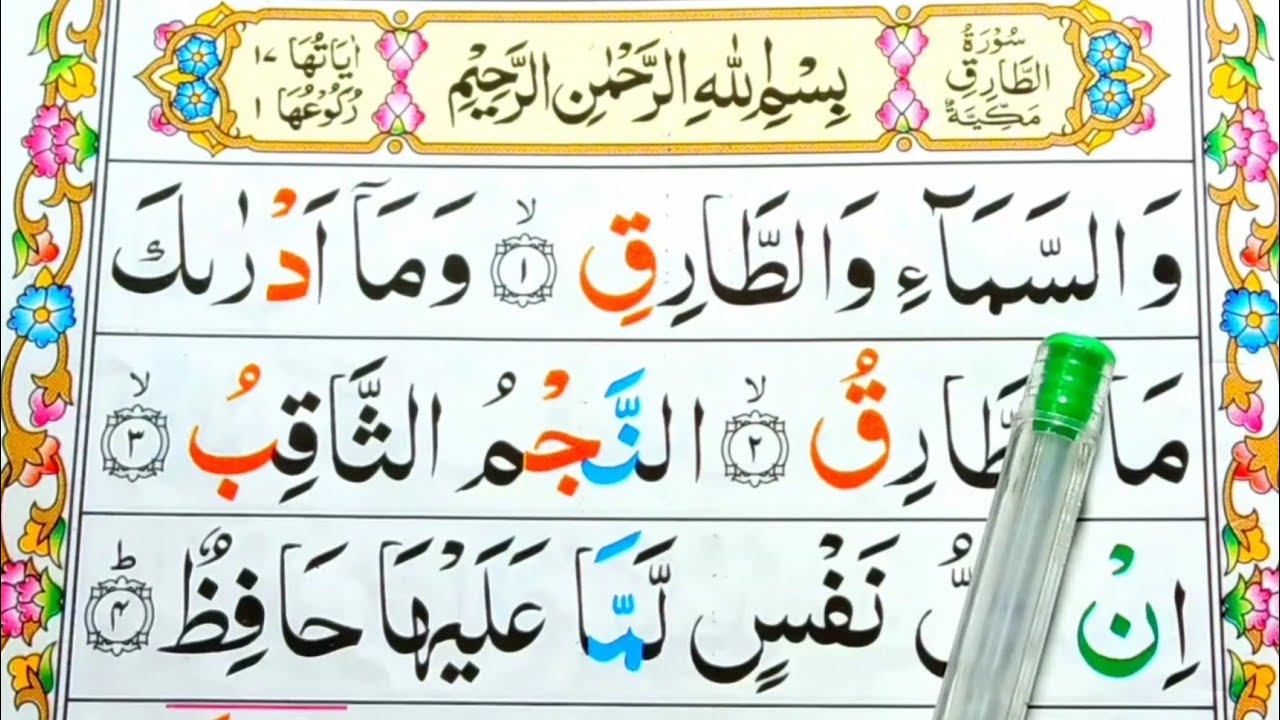 سُوْرَةُ الطَّارِقِ مَكِّيَّةٌ
بِسْمِ اللهِ الرَّحْمٰنِ الرَّحِيْمِ
اٰيَاتُهَا ١٧
رُكُوْعُهَا ١
وَالسَّمَآءِ وَالطَّارِقِ ۙ‏﴿١﴾ وَمَآ اَدْرٰىكَ
مَا الطَّارِقُ ۙ‏﴿٢﴾ النَّجْمُ الثَّاقِبُ ۙ‏﴿٣﴾
اِنْ نَفْسٍ لَّمَّا عَلَيْهَا حَافِظٌ ؕ‏﴿۴﴾